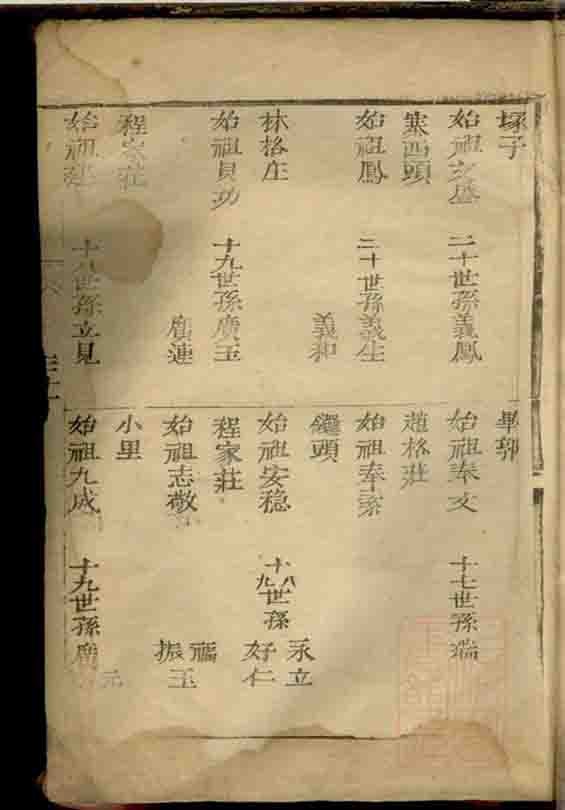 塚子
始祖文盛 二十世孫義鳳
寨西頭
始祖鳳 二十世孫義生
義和
林格庄
始祖貝功 十九世孫廣玉
廣連
程家莊
始祖 十八世孫立見
畢郭
始祖奉文 十七世孫瑞
趙格莊
始祖奉
頭
始祖安穩 十八九世孫 永立 好仁
程家莊
始祖志敬 福玉 振
小里
始祖九成 十九世孫廣
元